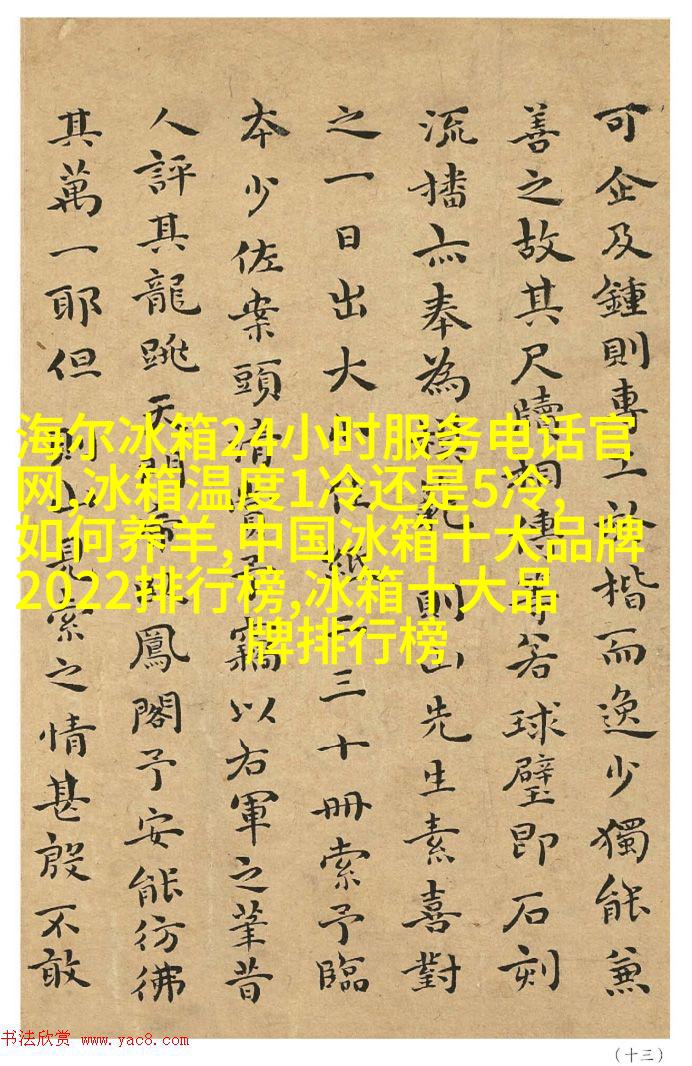 可企及鍾則專工於楷而逸少獨能兼
善之故其尺牘相傳若球璧即石刻
流播亦奉為則山先生素喜對
之一日出大佳紙二三十冊索予臨
本少佐案頭清賞予竊以右軍之筆昔
人評其龍跳天門虎臥鳳閣予安能彷彿
其萬一耶但則山見索之情甚殷不敢
海尔冰箱24小时服务电话官
网,冰箱温度1冷还是5冷,
如何养羊,中国冰箱十大品牌
2022排行榜,冰箱十大品
牌排行榜
书法欣赏 www.yac8.com
（十三）